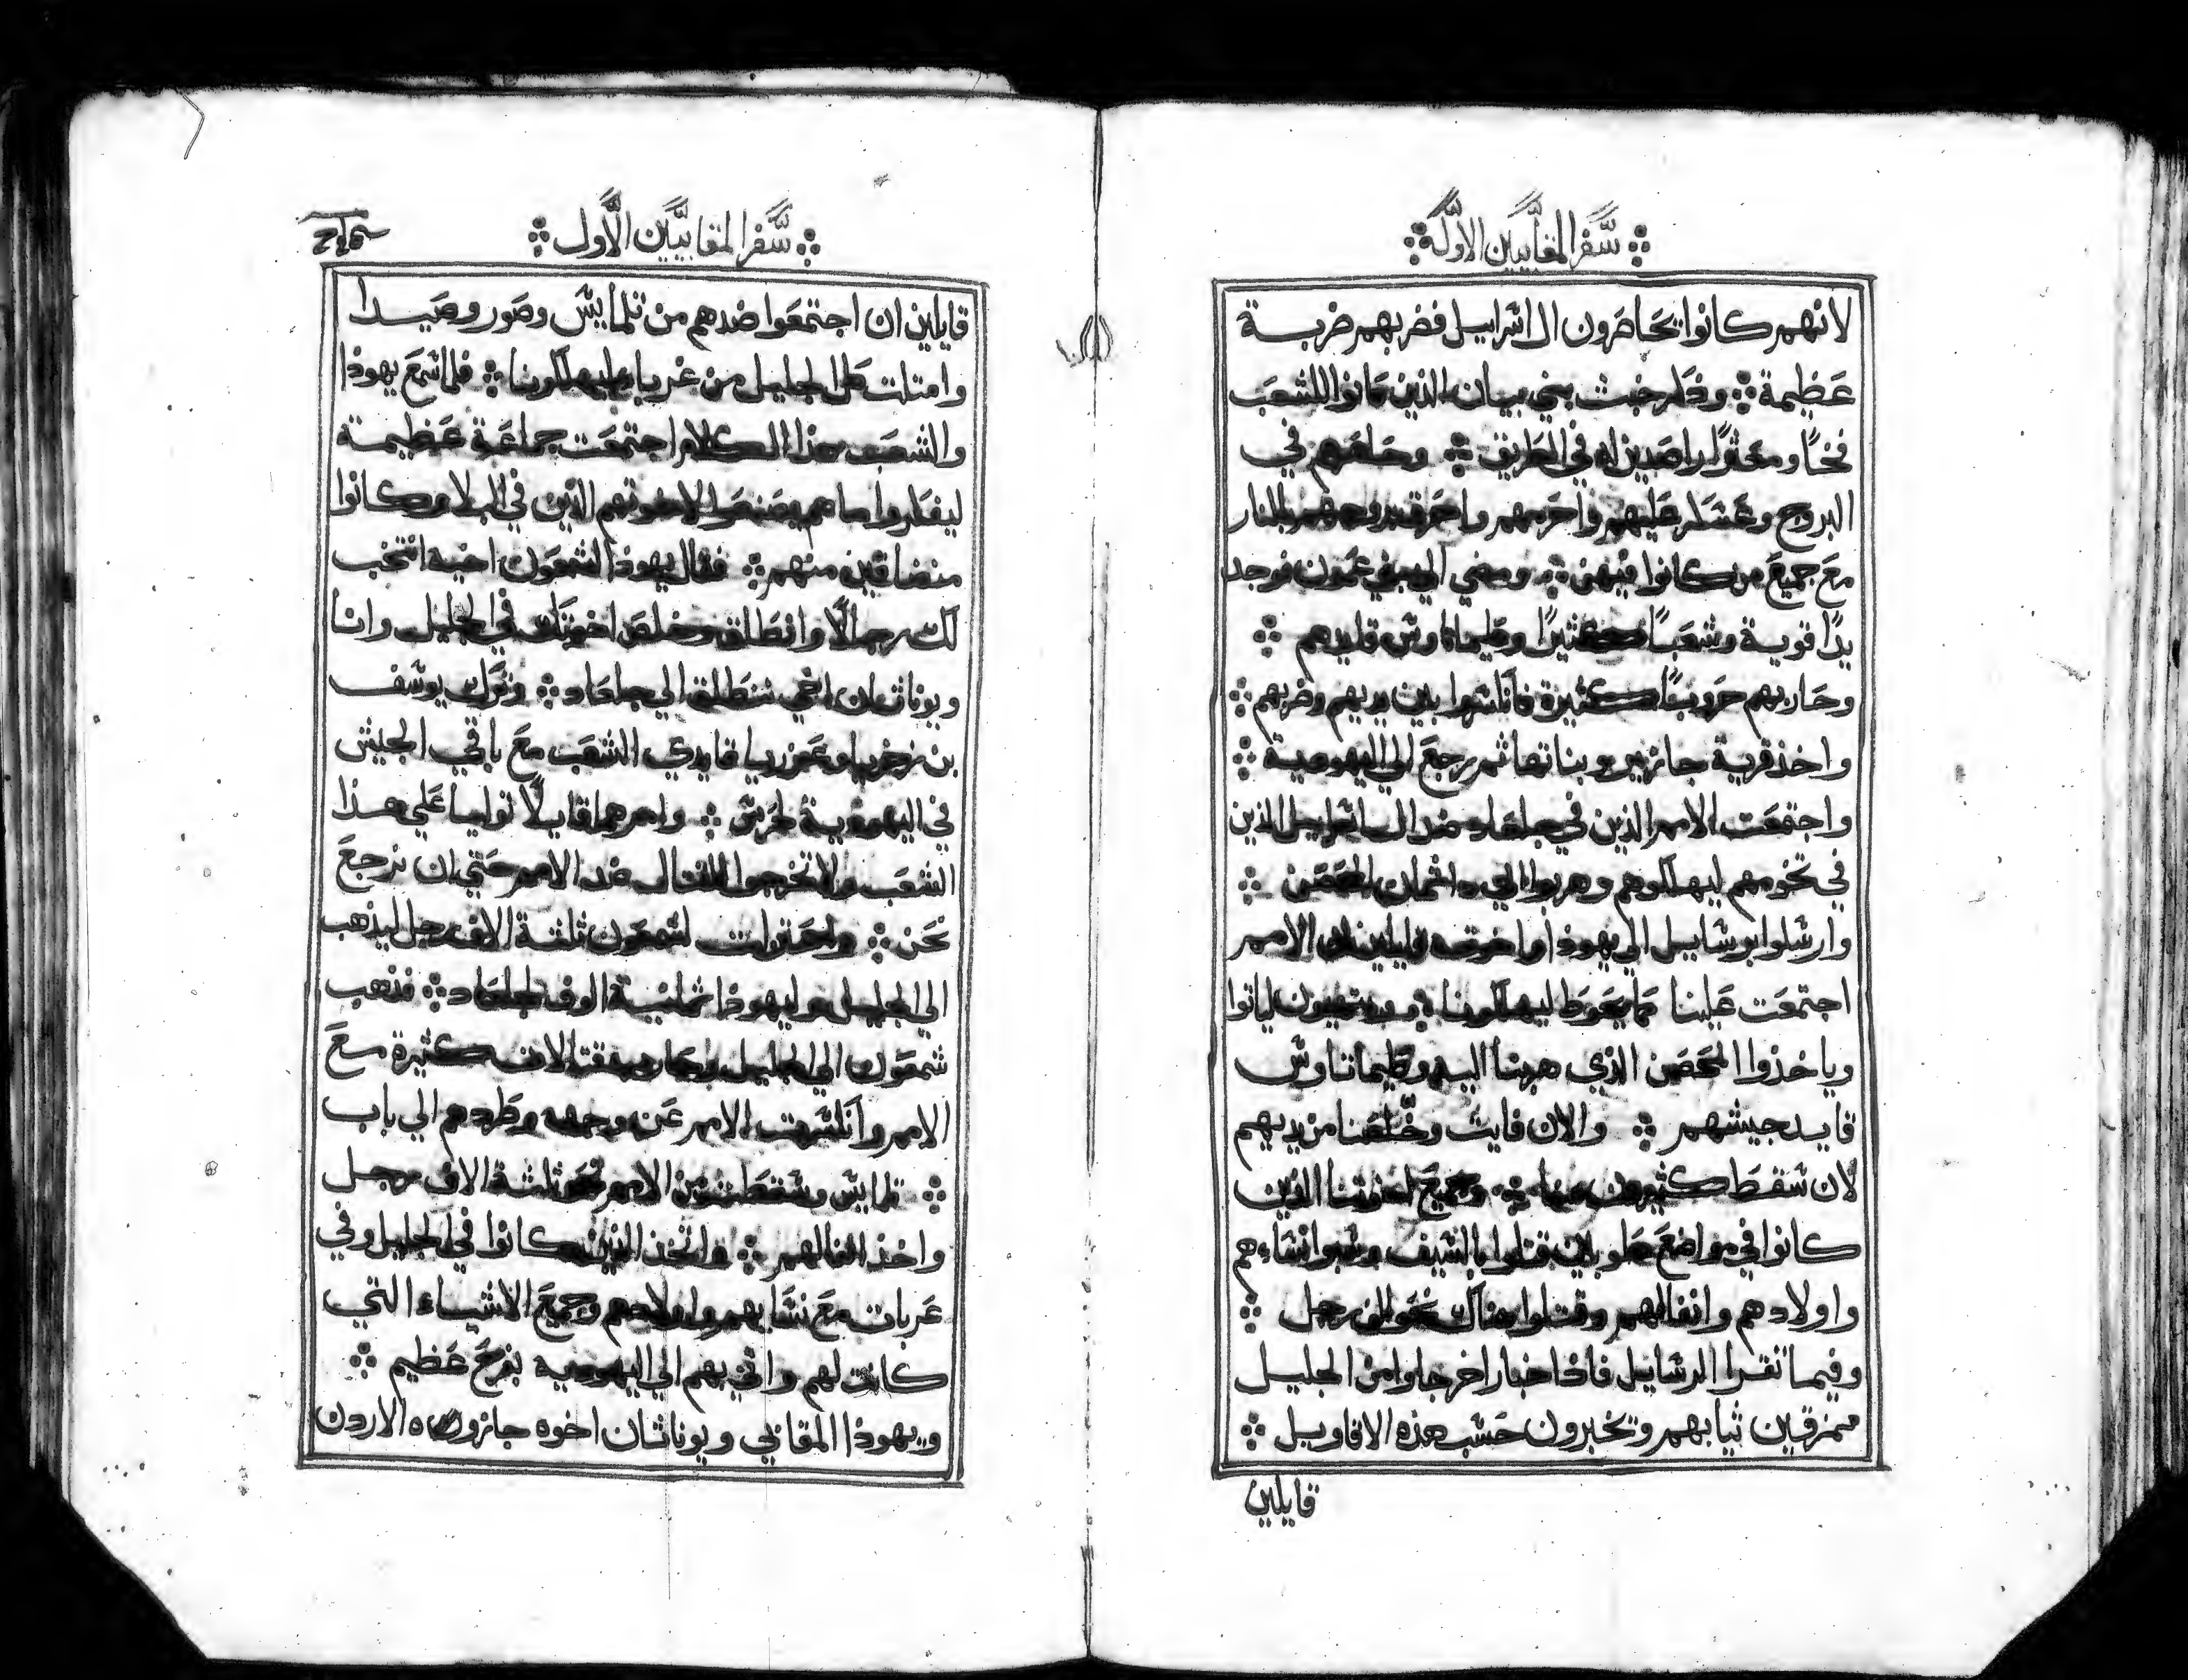 سفر المقابيين الاول
لانهم كانوا يحاصرون ال اسراييل فضربهم ضربة
عظيمة وذكر خبث بني بيان الذين كانوا للشعب
فخًا ومعثرًا راصدين له في الطريق وحاصرهم في
البروج وعسكر عليهم واحرمهم واحرق بروجهم بالنار
مع جميع من كانوا فيهن ومضي الي بني عمون فوجد
يدًا قوية وشعبًا كثيرًا وطيماتاوس قايدهم
وحاربهم حروبًا كثيرة فانكسروا بين يديهم وضربهم
واخذ قرية جازير وبناتها ثم رجع الي اليهودية
واجتمعت الامم الذين في جلعاد ضد ال اسراييل الذين
في تخومهم ليهلكوهم وهربوا الي داثمان الحصن
وارسلوا برسايل الي يهوذا واخوته قايلين ان الامم
اجتمعت علينا مما يحوط ليهلكونا ويستعدون لياتوا
وياخذوا الحصن الذي هربنا اليه وطيماتاوس
قايد جيشهم والان فايت وخلصنا من يديهم
لان سقط كثيرون منا وجميع اخوتنا الذين
كانوا في مواضع طوبين قتلوا بالسيف وسبوا نساءهم
واولادهم وانفالهم وقتلوا هناك نحو الف رجل
وفيما تقرا الرسايل فاذا اخبار اخر جاوا من الجليل
ممزقين ثيابهم وتخبرون حسب هذه الاقاويل
قايلين
سفر المقابيين الاول
قايلين ان اجتمعوا ضدهم من تلمايس وصور وصيدا
وامتلت كل الجليل من غربا ليهلكونا فلما سمع يهوذا
والشعب هذا الكلام اجتمعت جماعة عظيمة
ليفكروا ما هم يصنعوا لاخوتهم الذين في البلا وكانوا
منضاقين منهم فقال يهوذا لشمعون اخيه انتخب
لك رجالًا وانطلق وخلص اخوتك في الجليل وانا
ويوناثان اخي ننطلق الي جلعاد وترك يوسف
بن زخريا وعزريا قايدي الشعب مع باقي الجيش
في اليهودية لحرس وامرهما قايلًا توليا علي هذا
الشعب ولا تخرجوا للقتال ضد الامم حتي ان نرجع
نحن واحترات لشمعون ثلثة الاف رجل ليذهب
الي الجليل وليهوذا ثمانية الوف لجلعاد فذهب
شمعون الي الجليل وحارب قتالات كثيرة مع
الامم وانكسرت الامم عن وجهه وطردهم الي باب
تلمايس وسقط من الامم نحو ثلثة الاف رجل
واخذ انفالهم واتخذ الذين كانوا في الجليل وفي
عربات مع نسايهم واولادهم وجميع الاشياء التي
كانت لهم واتي بهم الي اليهودية بفرح عظيم
ويهوذا المقابي ويوناثان اخوه جازوا الاردن